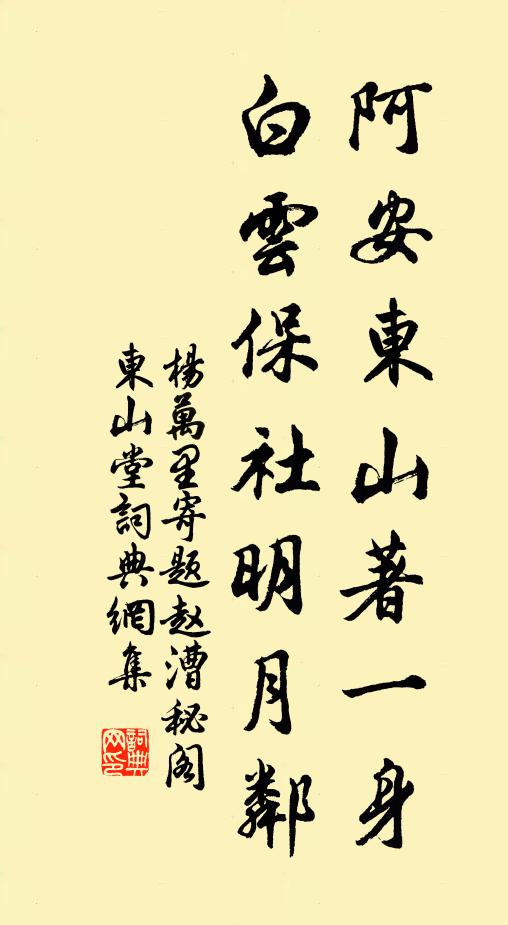 阿安東山著一身
白雲保社明月鄰
楊萬里寄題赵漕秘阁
東山堂詞典網集
詞典网印